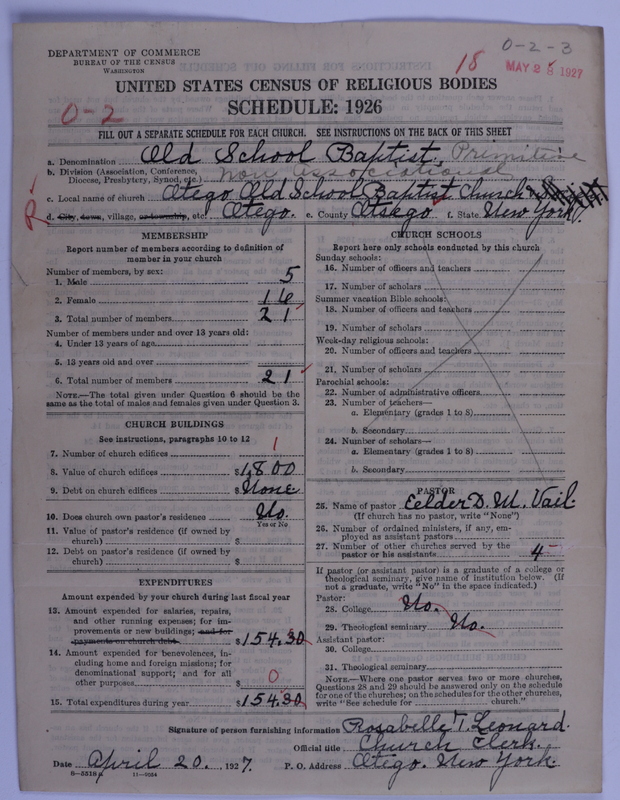 DEPARTMENT OF COMMERCE
BUREAU OF THE CENSUS
WASHINGTON
0-2-3
18
MAY 28 1927
UNITED STATES CENSUS OF RELIGIOUS BODIES
SCHEDULE: 1926
0-2
FILL OUT A SEPARATE SCHEDULE FOR EACH CHURCH. SEE INSTRUCTIONS ON THE BACK OF THIS SHEET
a. Denomination Old School Baptist, Primitive
b. Division (Association, Conference, Diocese, Presbytery, Synod, etc.) non associational
c. Local name of church Otego Old School Baptist Church
R
d. City, town, village, or township, etc. Otego. e. County Otsego f. State New York.
MEMBERSHIP
Report number of members according to definition of member in your church
Number of members, by sex:
1. Male 5
2. Female 16
3. Total number of members 21
Number of members under and over 13 years old:
4. Under 13 years of age
5. 13 years old and over
6. Total number of members 21
NOTE.—The total given under Question 6 should be the same as the total of males and females given under Question 3.
CHURCH BUILDINGS
See instructions, paragraphs 10 to 12
7. Number of church edifices 1
8. Value of church edifices $1,800
9. Debt on church edifices $None
10. Does church own pastor's residence No.
Yes or No
11. Value of pastor's residence (if owned by church) $
12. Debt on pastor's residence (if owned by church) $
EXPENDITURES
Amount expended by your church during last fiscal year
13. Amount expended for salaries, repairs, and other running expenses; for improvements or new buildings; and for payments on church debt $154.30
14. Amount expended for benevolences, including home and foreign missions; for denominational support; and for all other purposes $ 0
15. Total expenditures during year $154.30
CHURCH SCHOOLS
Report here only schools conducted by this church
Sunday schools:
16. Number of officers and teachers
17. Number of scholars
Summer vacation Bible schools:
18. Number of officers and teachers
19. Number of scholars
Week-day religious schools:
20. Number of officers and teachers
21. Number of scholars
Parochial schools:
22. Number of administrative officers
23. Number of teachers—
a. Elementary (grades 1 to 8)
b. Secondary
24. Number of scholars—
a. Elementary (grades 1 to 8)
b. Secondary
PASTOR
25. Name of pastor Eelder D. M. Vail.
(If church has no pastor, write "None")
26. Number of ordained ministers, if any, employed as assistant pastors
27. Number of other churches served by the pastor or his assistants 4
If pastor (or assistant pastor) is a graduate of a college or theological seminary, give name of institution below. (If not a graduate, write "No" in the space indicated.)
Pastor:
28. College No.
29. Theological seminary No.
Assistant pastor:
30. College
31. Theological seminary
NOTE.—Where one pastor serves two or more churches, Questions 28 and 29 should be answered only on the schedule for one of the churches; on the schedules for the other churches, write "See schedule for church."
Signature of person furnishing information Rosabelle T. Leonard.
Official title Church Clerk.
Date April 20. 1927. P. O. Address Otego. New York.
8-5518a 11-9554